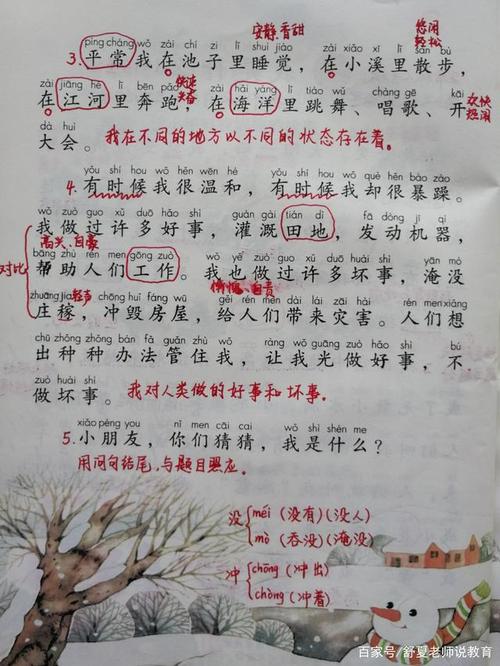 安静、香甜
悠闲
轻松
píng cháng wǒ zài chí zi lǐ shuì jiào zài xiǎo xī lǐ sàn bù
3.平常我在池子里睡觉,在小溪里散步,
zài jiāng hé lǐ bēn pǎo zài hǎi yáng lǐ tiào wǔ chàng gē kāi
快速
欢快
热闹
在江河里奔跑,在海洋里跳舞、唱歌、开
dà huì
大会。我在不同的地方以不同的状态存在着。
yǒu shí hou wǒ hěn wēn hé yǒu shí hou wǒ què hěn bào zào
4.有时候我很温和,有时候我却很暴躁。
wǒ zuò guo xǔ duō hǎo shì guàn gài tián dì fā dòng jī qì
我做过许多好事,灌溉田地,发动机器,
高兴、自豪
bāng zhù rén men gōng zuò wǒ yě zuò guo xǔ duō huài shì yān mò
对比
帮助人们工作。我也做过许多坏事,淹没
轻声
自责
zhuāng jia chōng huǐ fáng wū gěi rén men dài lái zāi hài rén men xiǎng
庄稼,冲毁房屋,给人们带来灾害。人们想
chū zhǒng zhǒng bàn fǎ guǎn zhù wǒ ràng wǒ guāng zuò hǎo shì bú
出种种办法管住我,让我光做好事,不
zuò huài shì
做坏事。我对人类做的好事和坏事。
xiǎo péng you nǐ men cāi cai wǒ shì shén me
5.小朋友,你们猜猜,我是什么?
用问句结尾,与题目照应。
没 méi (没有)(没人)
mò (吞没)(淹没)
冲 chōng (冲出)
chòng (冲着)
百家号/舒夏老师说教育